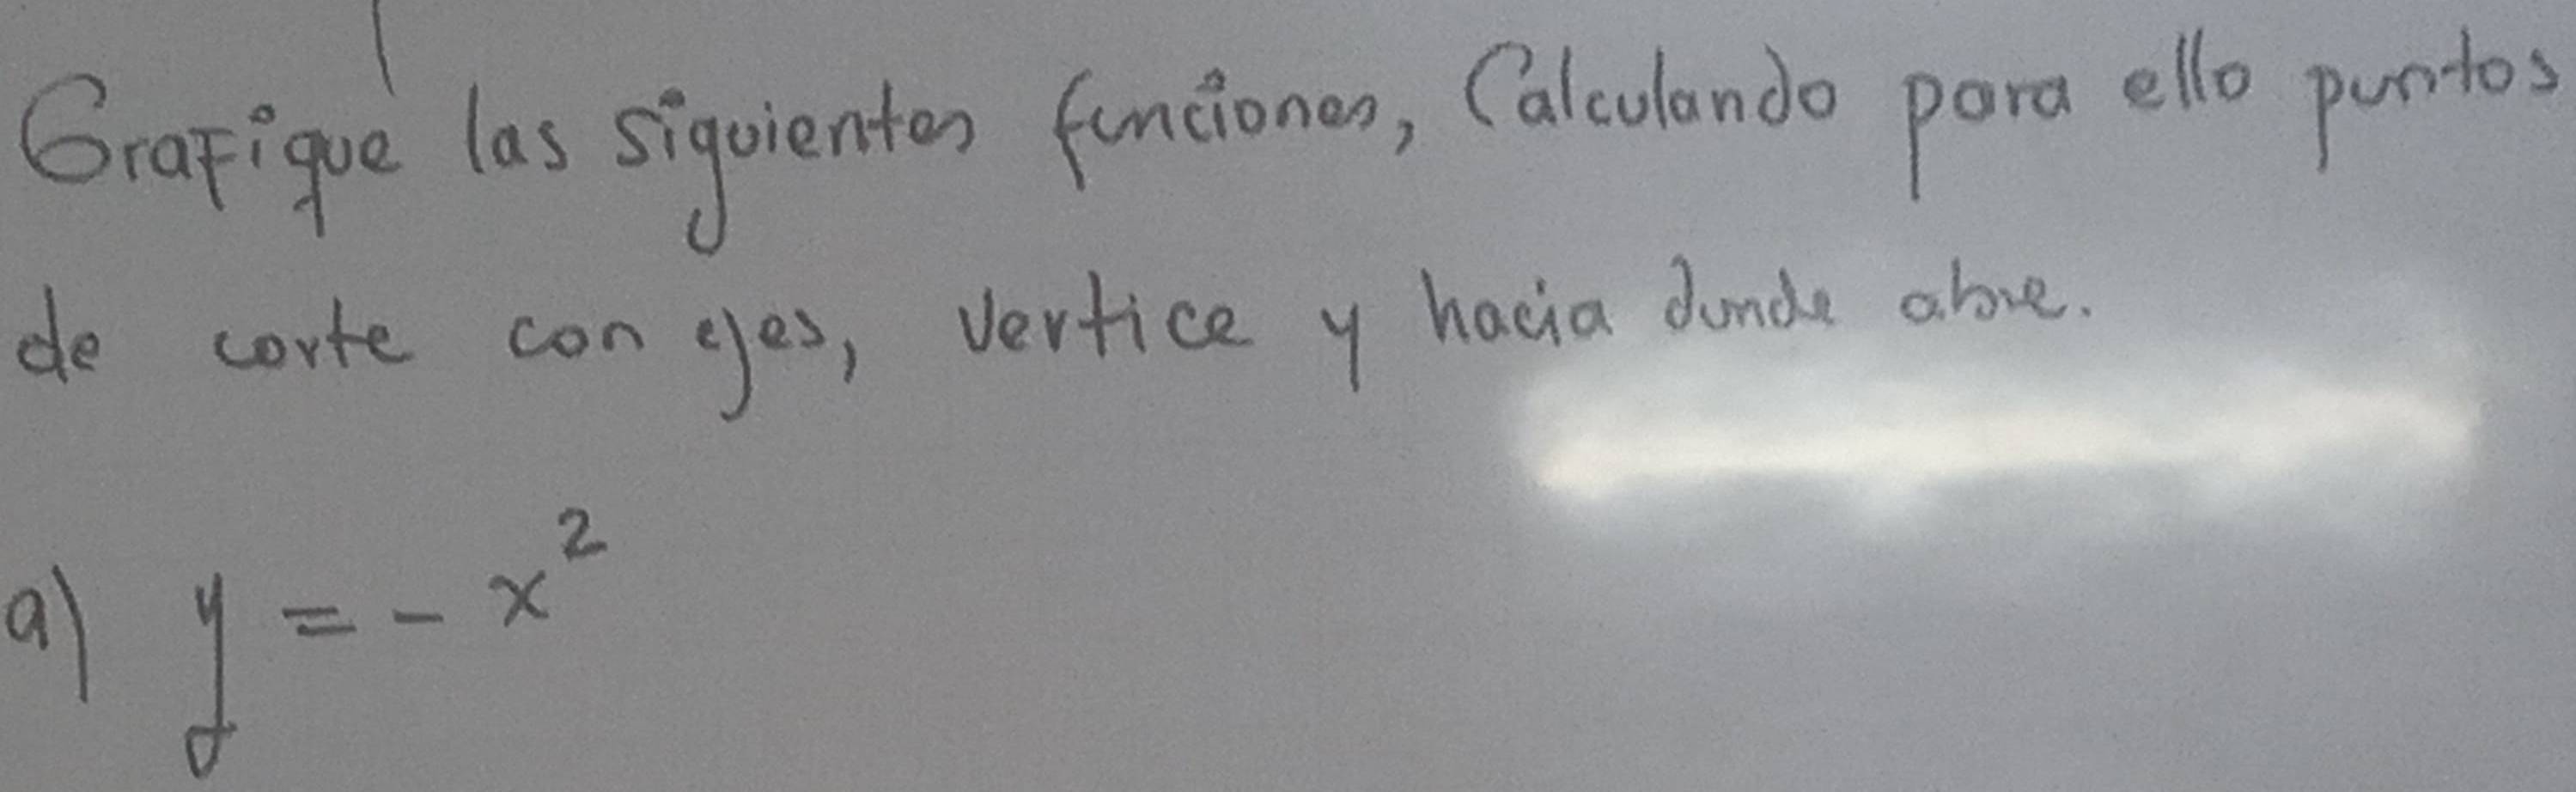 Grafique las siguientes funciones, Calculando para ello puntos
de corte con ejes, Vertice y hacia donde abre.
a) y = - x²